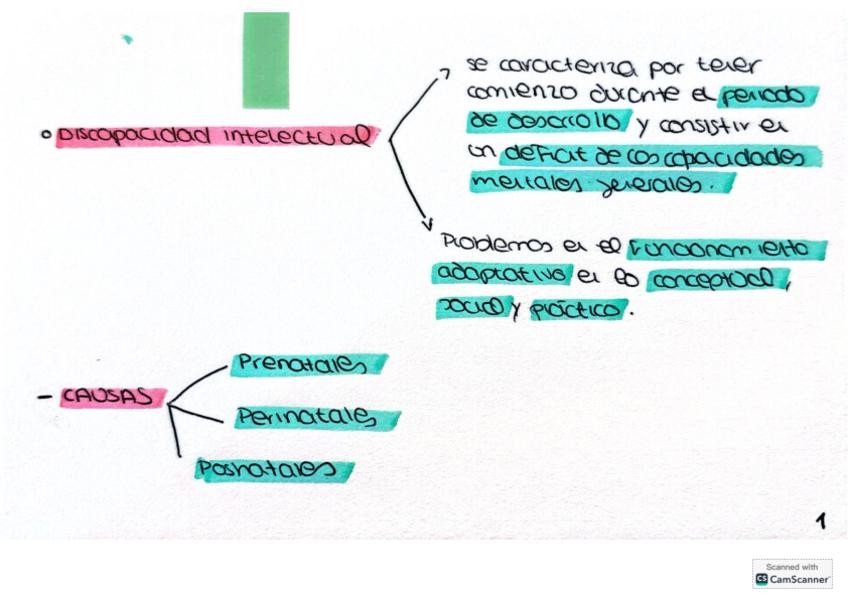 se caracteriza por tener
comienzo durante el periodo
de desarrollo y consistir en
DISCAPACIDAD INTELECTUAL
un deficit de las capacidades
mentales generales.
Problemas en el Funcionamiento
adaptativo en lo conceptual,
social y práctico.
Prenatales
- CAUSAS
Perinatales
Posnatales
1
Scanned with
CS CamScanner